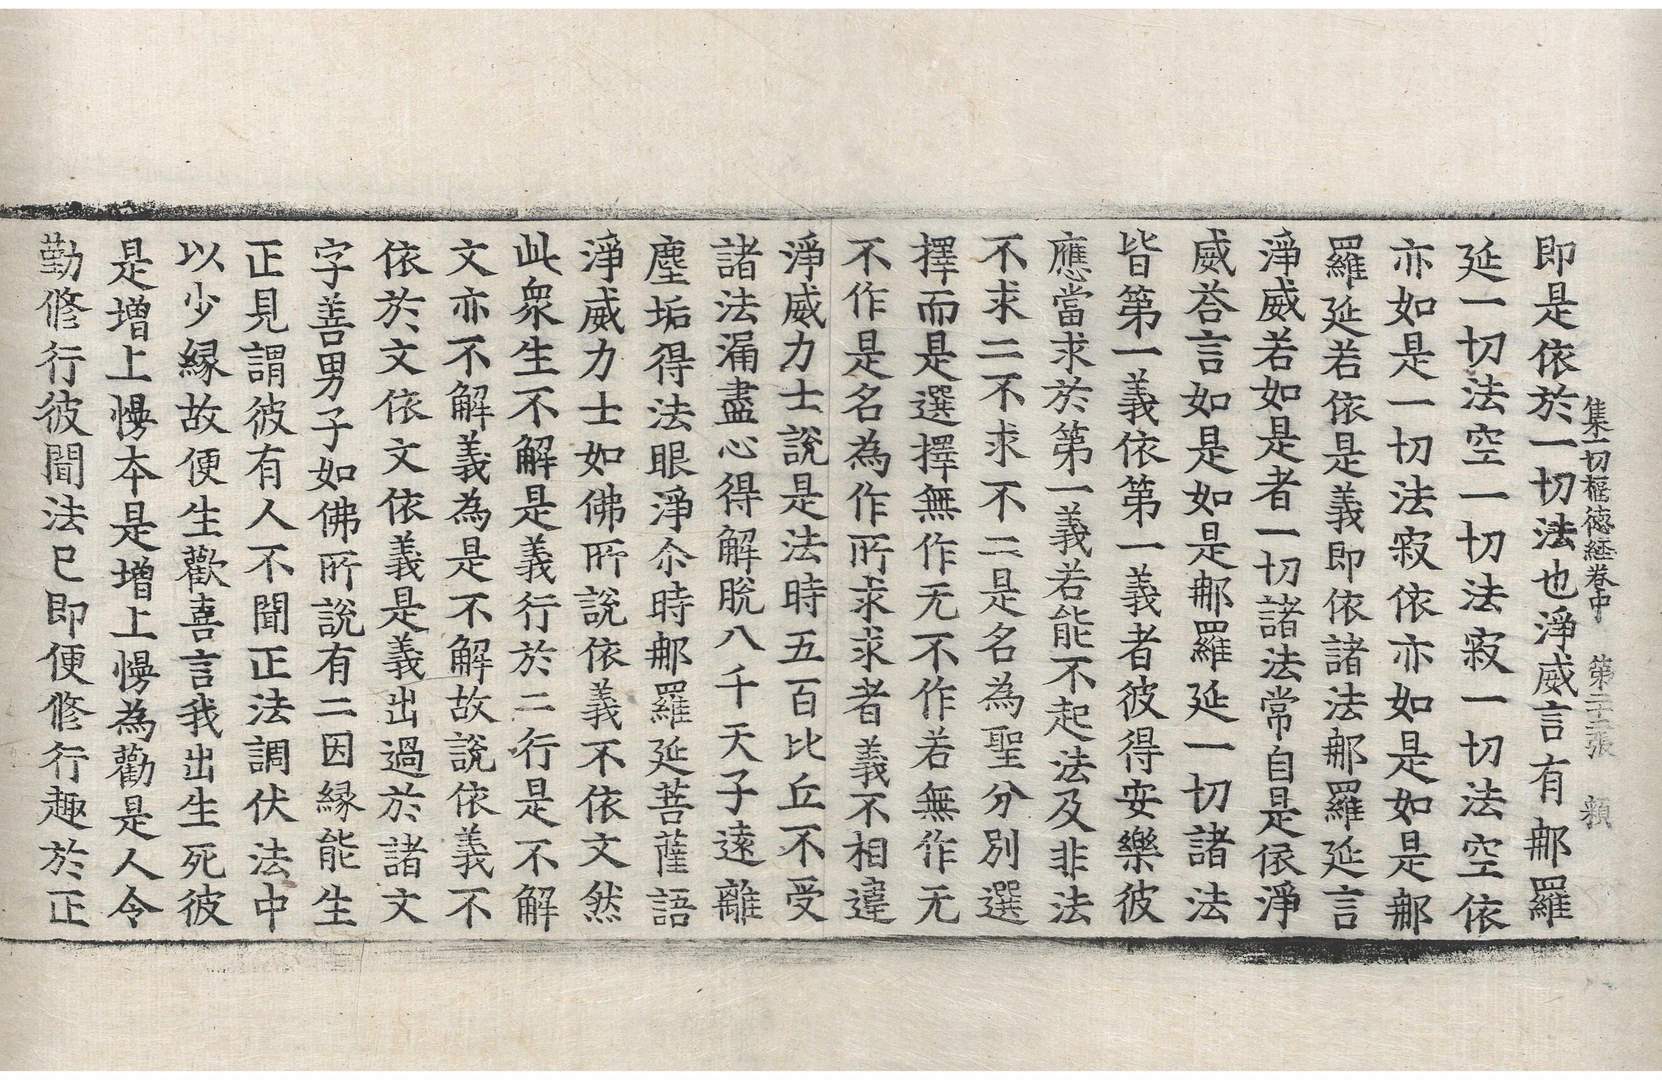 集一切福德経卷中 第二十五張 頼
即是依於一切法也淨威言有郍羅
延一切法空一切法寂一切法空依
亦如是一切法寂依亦如是如是郍
羅延若依是義即依諸法郍羅延言
淨威若如是者一切諸法常自是依淨
威荅言如是如是郍羅延一切諸法
皆第一義依第一義者彼得安樂彼
應當求於第一義若能不起法及非法
不求二不求不二是名為聖分別選
擇而是選擇無作无不作若無作无
不作是名為作所求求者義不相違
淨威力士說是法時五百比丘不受
諸法漏盡心得解脫八千天子遠離
塵垢得法眼淨尒時郍羅延菩薩語
淨威力士如佛所說依義不依文然
此衆生不解是義行於二行是不解
文亦不解義為是不解故說依義不
依於文依文依義是義出過於諸文
字善男子如佛所說有二因縁能生
正見謂彼有人不聞正法調伏法中
以少縁故便生歡喜言我出生死彼
是增上慢本是增上慢為勸是人令
勤修行彼聞法已即便修行趣於正